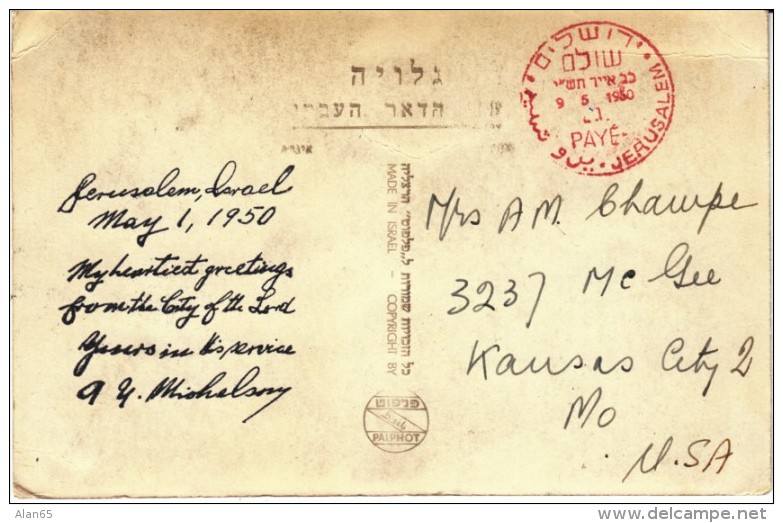 גלויה
הדאר העברי
Jerusalem, Israel
May 1, 1950
My heartiest greetings
from the City of the Lord
Yours in His service
A. U. Michelson
כל הזכויות שמורות ל"פלפוט" הרצליה
MADE IN ISRAEL - COPYRIGHT BY
פלפוט
PALPHOT
ירושלים
שולם
כב אייר תש"י
9 5 1950
PAYÉ
JERUSALEM
Mrs A M. Champe
3237 Mc Gee
Kansas City 2
Mo
U.SA
Alan65
delcampe.net